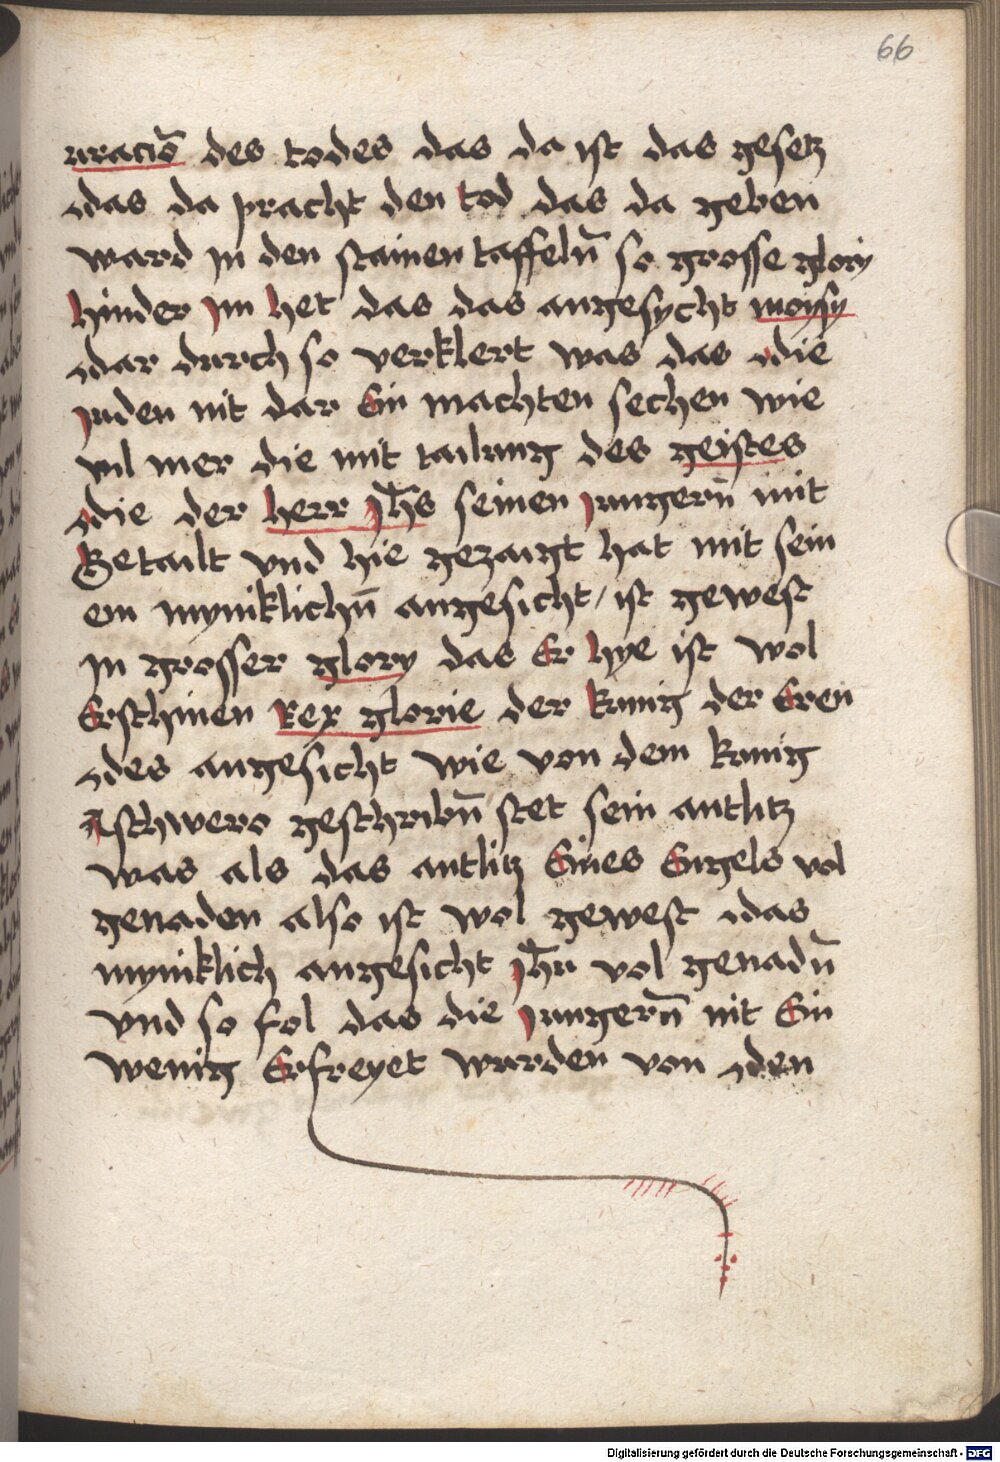 66
uraciō des todes das da ist das gesetz
das da pracht den tod das da geben
ward jn den stainen taffelñ so grosse glory
hinder jm het das das angesycht moysy
dar durch so verklert was das die
juden nit dar Ein machten sechen wie
vil mer die mit tailung des geistes
die der herr jh̄s seinen jungerñ mit
Getailt vnd hie gezaigt hat mit sein
em myniklichñ angesicht / ist gewest
jn grosser glory das Er hye ist wol
Erschinen Rex glorie der kunig der Eren
des angesicht wie von dem kunig
Aschwero geschribñ stet sein antlitz
was als das antlitz Eines Engels vol
genaden also ist wol gewest das
myniklich angesicht jh̄u vol genadñ
vnd so fol das die jungerñ nit Ein
wenig Erfreyet wurden von den
Digitalisierung gefördert durch die Deutsche Forschungsgemeinschaft - DFG